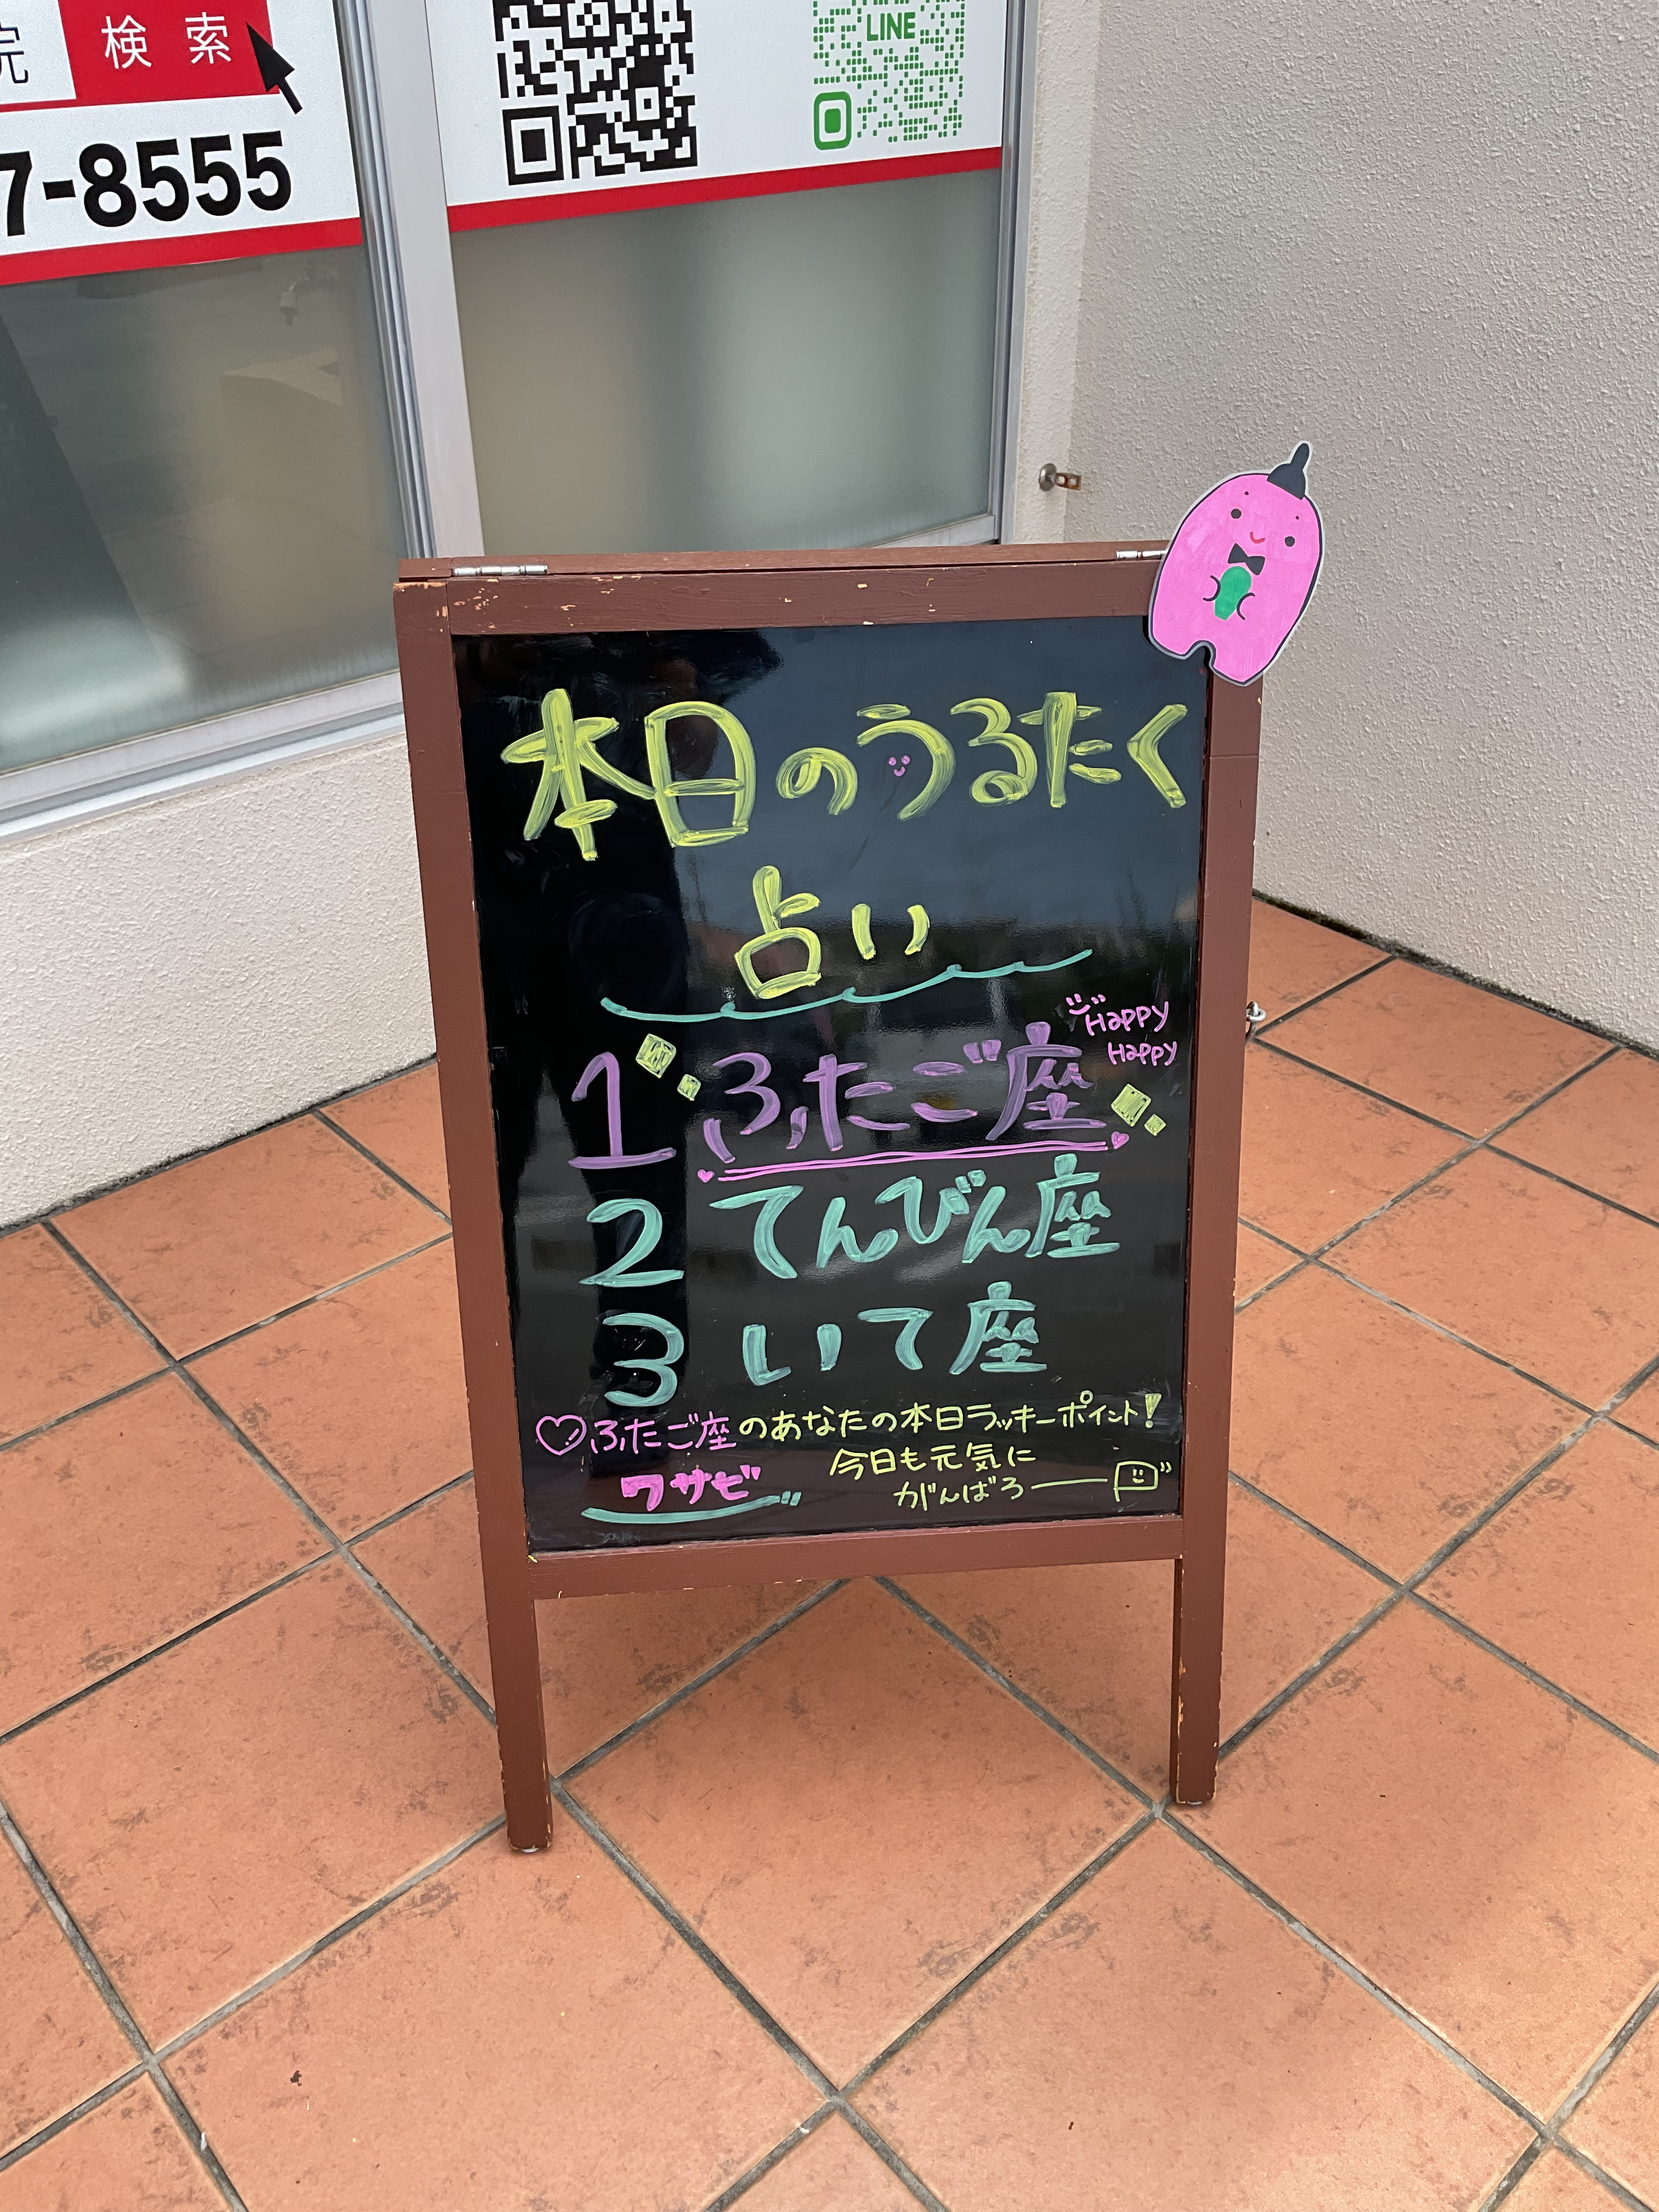 院 検索
7-8555
LINE
本日のうるたく
占い
Happy
Happy
1 ふたご座
2 てんびん座
3 いて座
ふたご座のあなたの本日ラッキーポイント!
ワサビ
今日も元気に
がんばろー